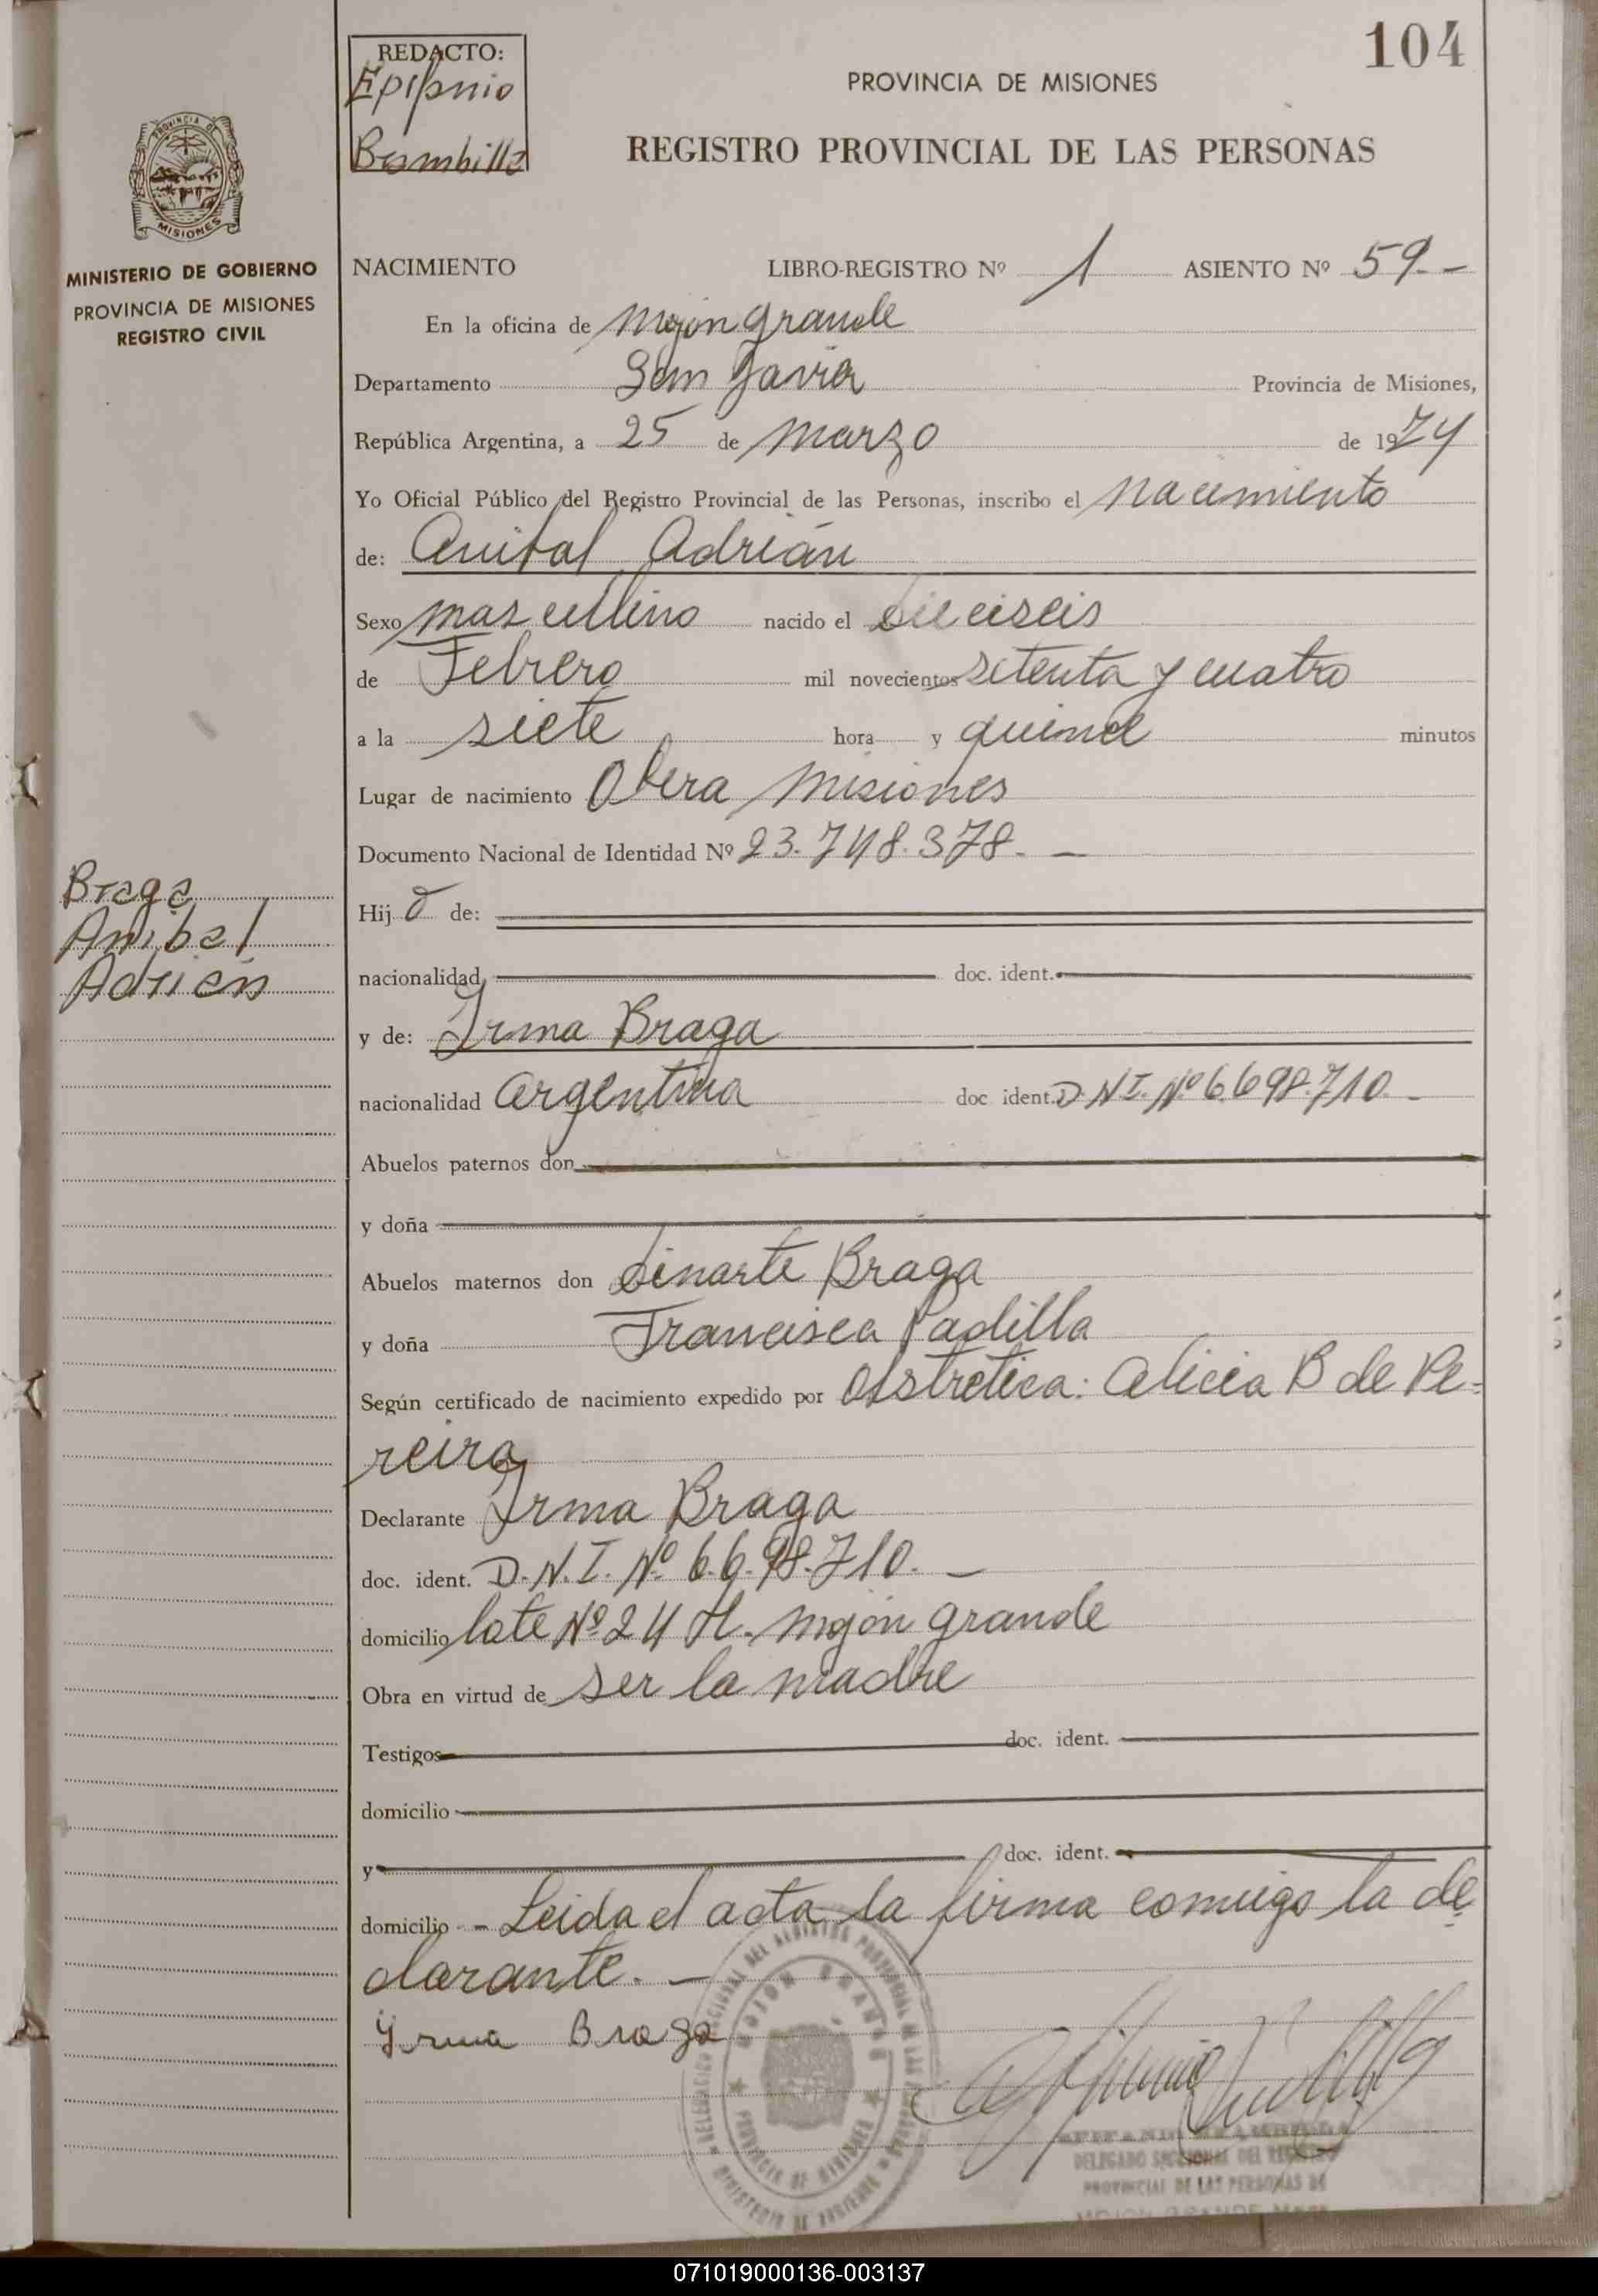 104
REDACTO:
Epifanio
Bombilla
PROVINCIA DE MISIONES
REGISTRO PROVINCIAL DE LAS PERSONAS
PROVINCIA DE
MISIONES
MINISTERIO DE GOBIERNO
PROVINCIA DE MISIONES
REGISTRO CIVIL
NACIMIENTO LIBRO-REGISTRO Nº 1 ASIENTO Nº 59.-
En la oficina de Mojon grande
Departamento San Javier Provincia de Misiones,
República Argentina, a 25 de Marzo de 1974
Yo Oficial Público del Registro Provincial de las Personas, inscribo el nacimiento
de: Anibal Adrián
Sexo masculino nacido el dieciseis
de Febrero mil novecientos setenta y cuatro
a la siete hora y quince minutos
Lugar de nacimiento Obera Misiones
Documento Nacional de Identidad Nº 23.748.378.-
Braga
Anibal
Adrián
Hijo de:
nacionalidad doc. ident.
y de: Irma Braga
nacionalidad argentina doc ident. D.N.I. Nº 6.698.710.-
Abuelos paternos don
y doña
Abuelos maternos don Linarte Braga
y doña Francisca Padilla
Según certificado de nacimiento expedido por Obstretica: Alicia B de Pe-
reira
Declarante Irma Braga
doc. ident. D.N.I. Nº 6.698.710.-
domicilio lote Nº 24 H. Mojón grande
Obra en virtud de ser la madre
Testigos doc. ident.
domicilio
y doc. ident.
domicilio - Leida el acta la firma comigo la de
clarante.-
Yrma Braga
MOJON GRANDE
PROVINCIA DE MISIONES
DELEGADO SECCIONAL DEL REGISTRO
PROVINCIAL DE LAS PERSONAS DE
071019000136-003137